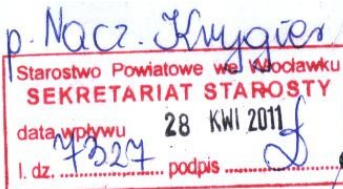 p. Nacz. Krygier
Starostwo Powiatowe we Włocławku
SEKRETARIAT STAROSTY
data wpływu 28 KWI 2011
l. dz. 7327 podpis